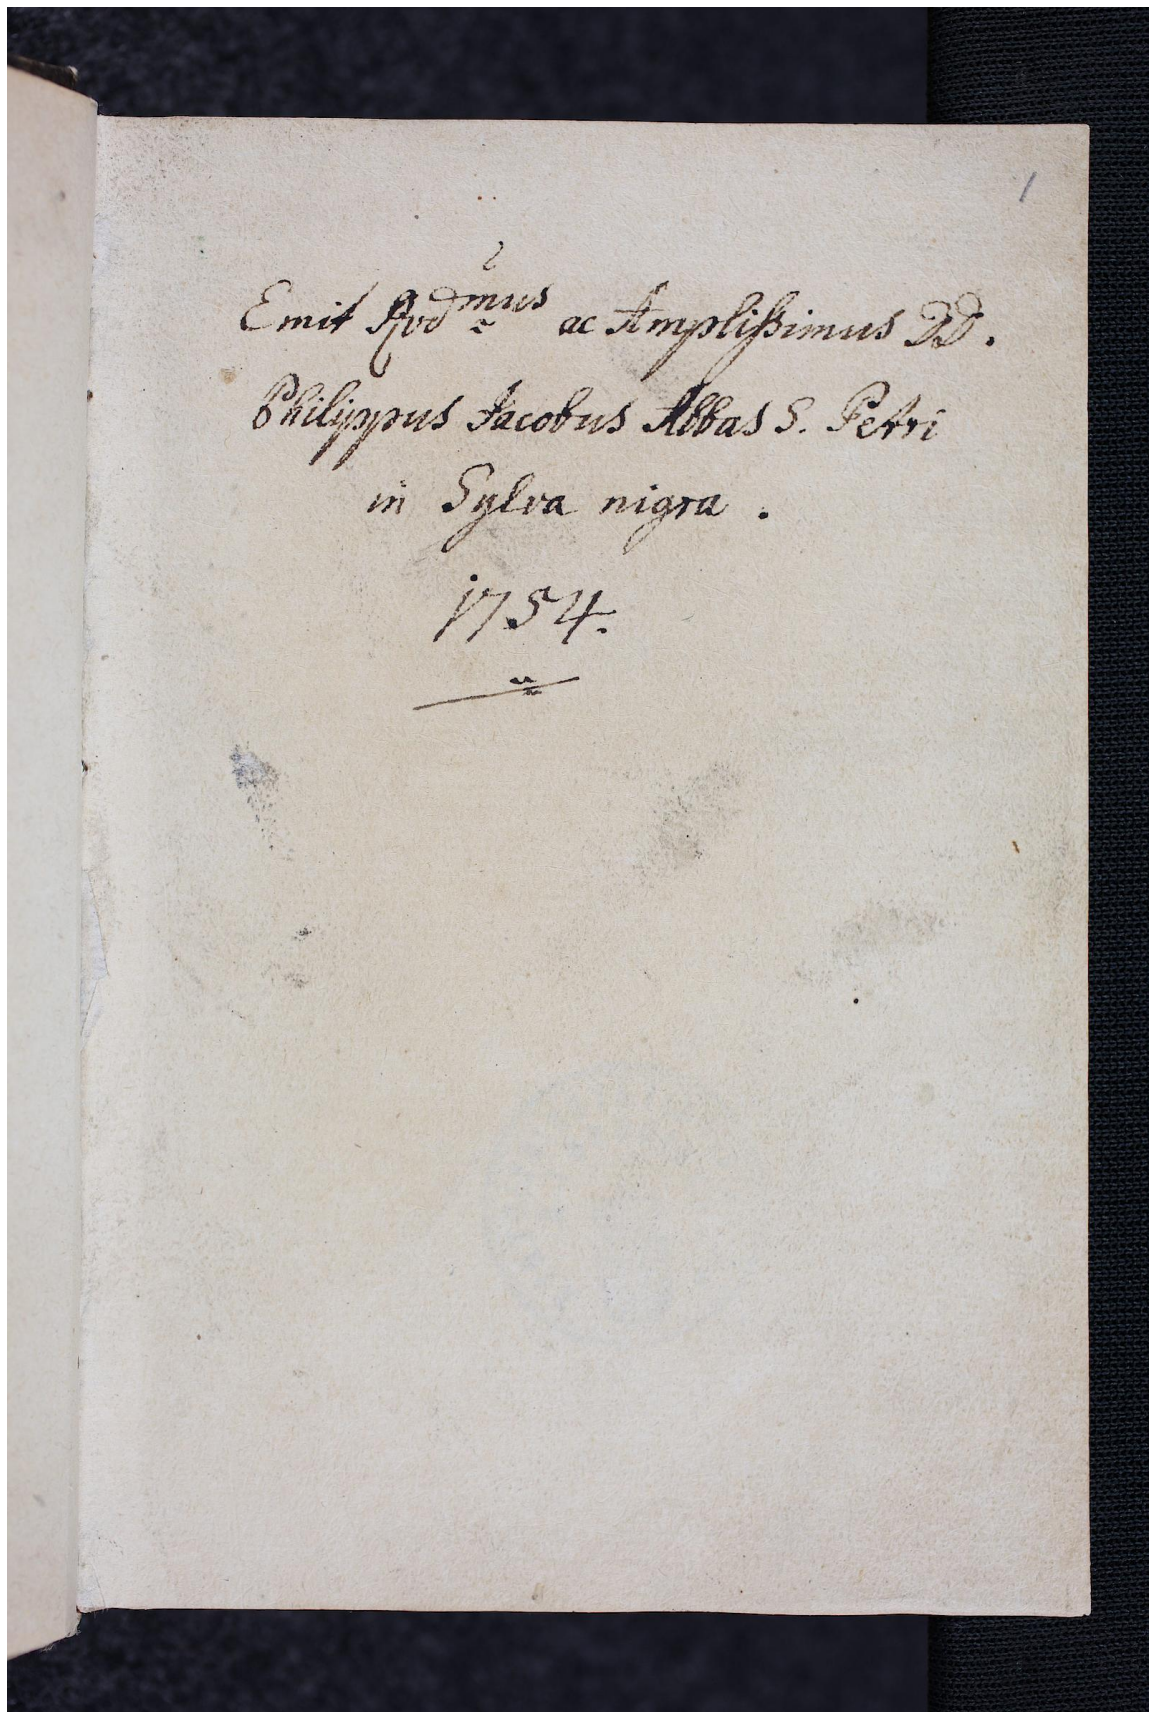 1
Emit Rvdmus ac Amplißimus DD.
Philippus Jacobus Abbas S. Petri
in Sylva nigra .
1754.